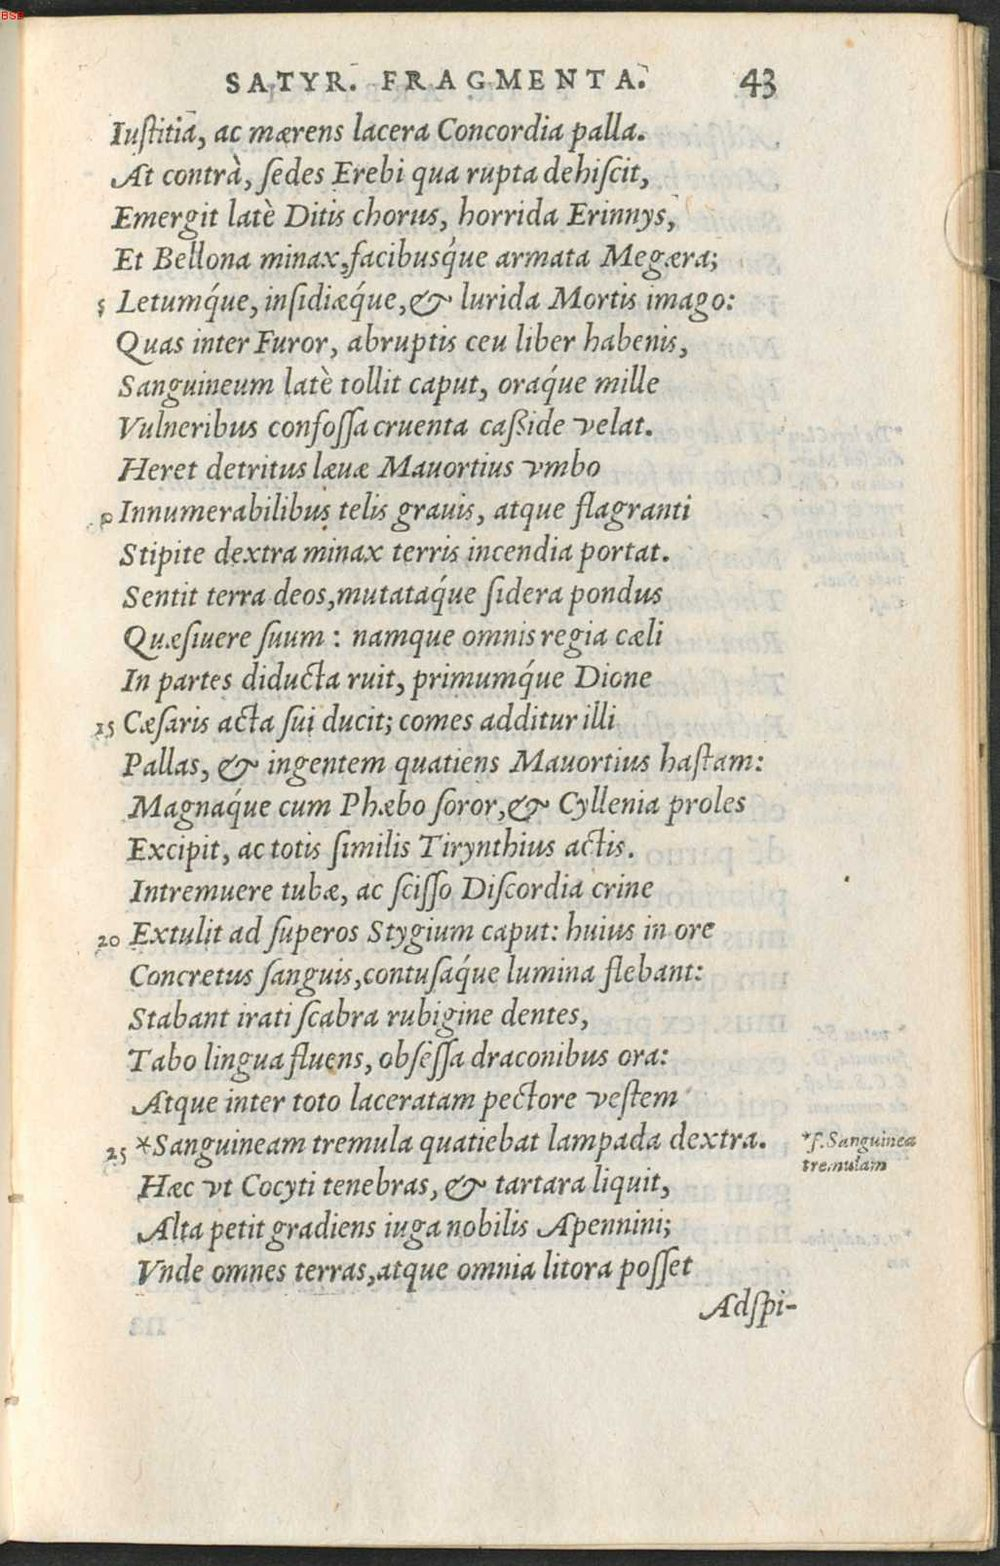 BSB
SATYR. FRAGMENTA. 43
Iuſtitia, ac mærens lacera Concordia palla.
At contrà, ſedes Erebi qua rupta dehiſcit,
Emergit latè Ditis chorus, horrida Erinnys,
Et Bellona minax, facibusq́ue armata Megæra;
5 Letumq́ue, inſidiæq́ue, & lurida Mortis imago:
Quas inter Furor, abruptis ceu liber habenis,
Sanguineum latè tollit caput, oraq́ue mille
Vulneribus confoſſa cruenta caßide velat.
Heret detritus læuæ Mauortius vmbo
Innumerabilibus telis grauis, atque flagranti
Stipite dextra minax terris incendia portat.
Sentit terra deos, mutataq́ue ſidera pondus
Quæſiuere ſuum : namque omnis regia cæli
In partes diducta ruit, primumq́ue Dione
15 Cæſaris acta ſui ducit; comes additur illi
Pallas, & ingentem quatiens Mauortius haſtam:
Magnaq́ue cum Phæbo ſoror, & Cyllenia proles
Excipit, ac totis ſimilis Tirynthius actis.
Intremuere tubæ, ac ſciſſo Diſcordia crine
20 Extulit ad ſuperos Stygium caput: huius in ore
Concretus ſanguis, contuſaq́ue lumina flebant:
Stabant irati ſcabra rubigine dentes,
Tabo lingua fluens, obſeſſa draconibus ora:
Atque inter toto laceratam pectore veſtem
25 *Sanguineam tremula quatiebat lampada dextra.
*f. Sanguinea
tremulam
Hæc vt Cocyti tenebras, & tartara liquit,
Alta petit gradiens iuga nobilis Apennini;
Vnde omnes terras, atque omnia litora poſſet
Adſpi-